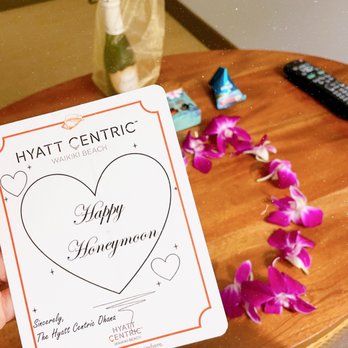 HYATT CENTRIC™
WAIKIKI BEACH
Happy
Honeymoon
Sincerely,
The Hyatt Centric Ohana
HYATT
CENTRIC
WAIKIKI BEACH